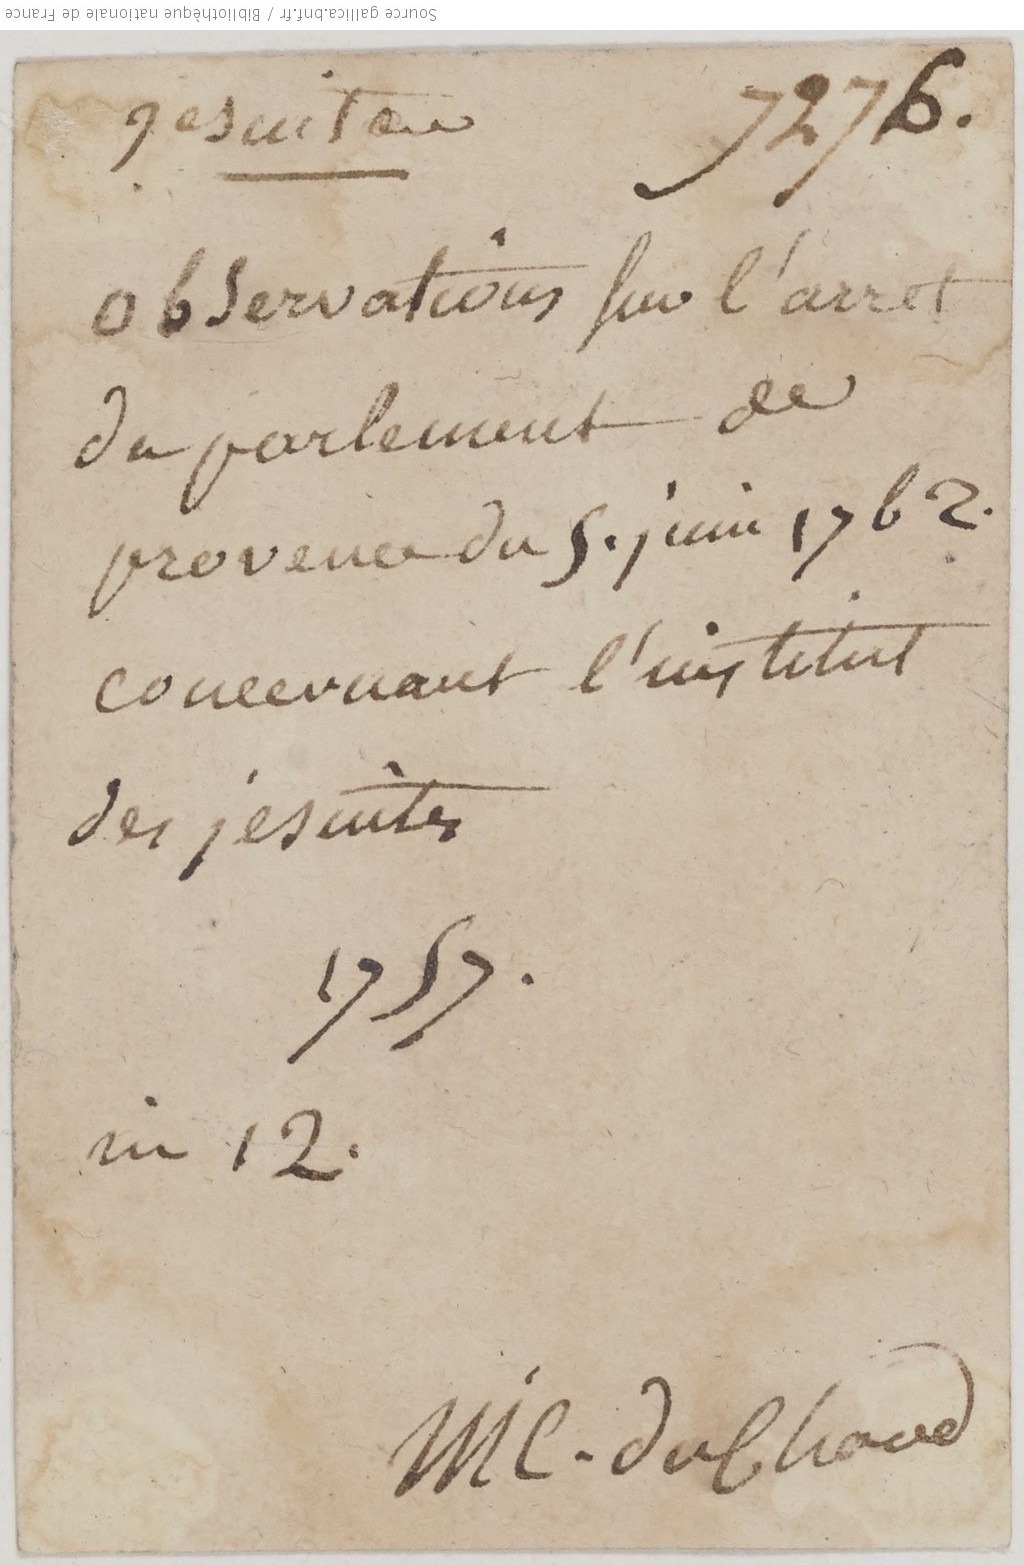 Source gallica.bnf.fr / Bibliothèque nationale de France
jesuites 7276.
observations sur l'arret
du parlement de
provence du 5. juin 1762.
concernant l'institut
des jesuites
1757.
in 12.